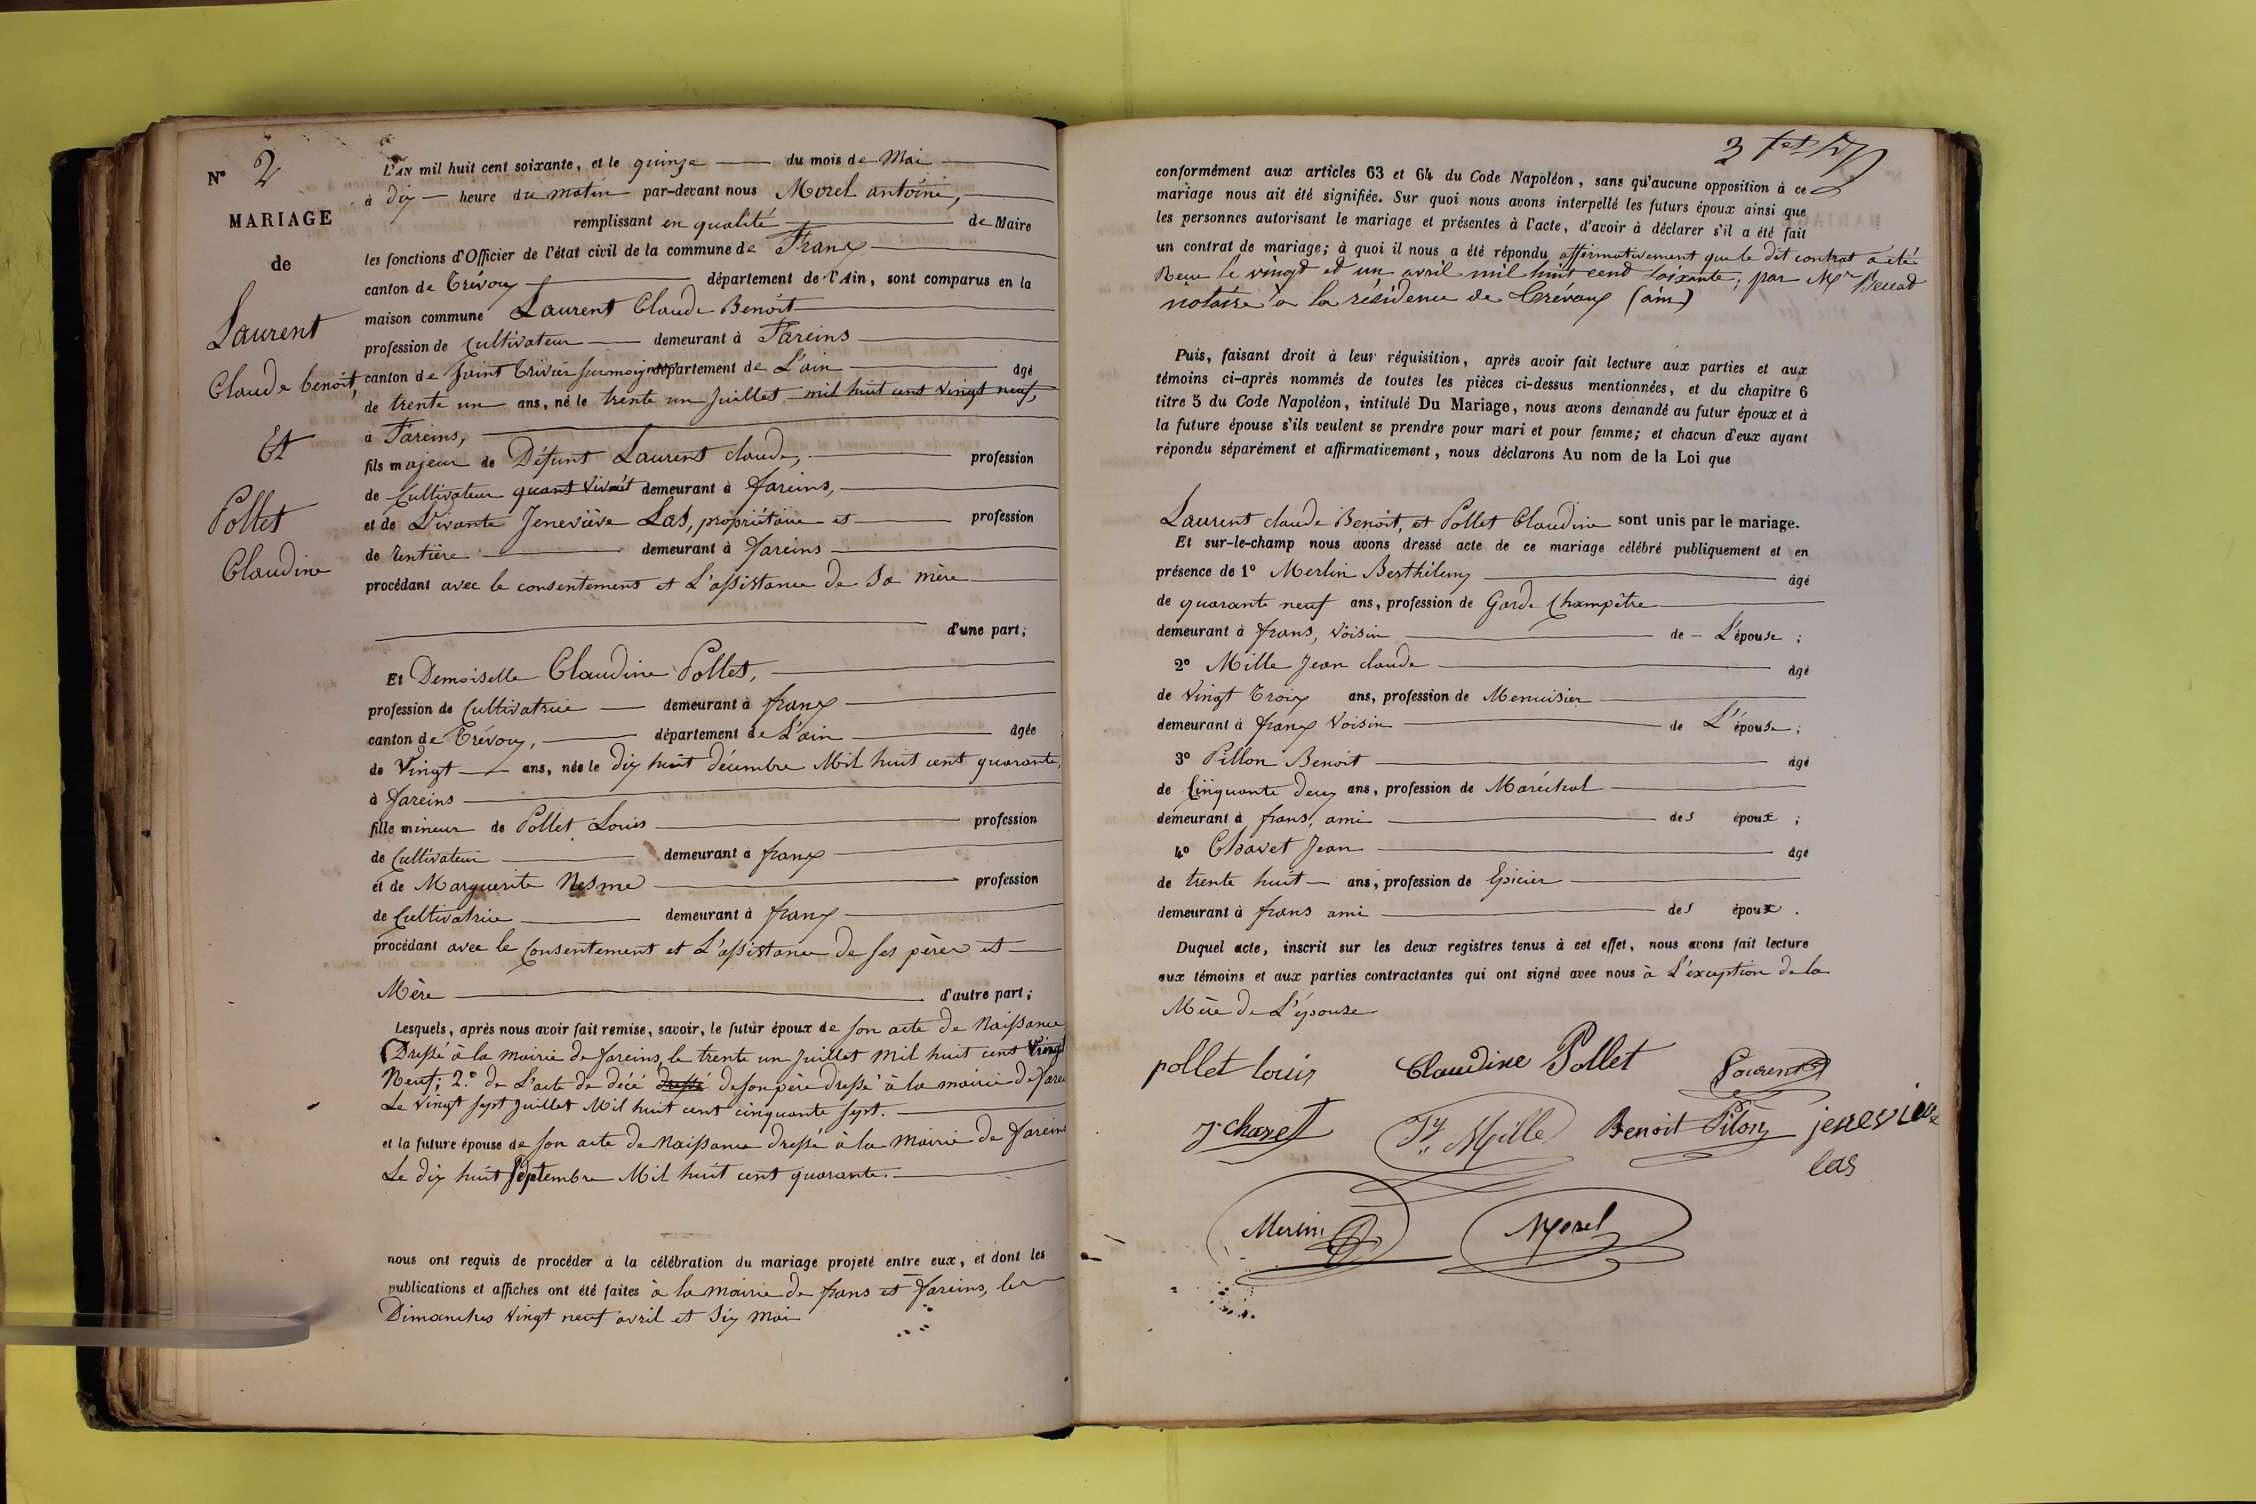 N° 2
MARIAGE
de
Laurent
Claude benoit,
Et
Pollet
Claudine
L'AN mil huit cent soixante, et le quinze du mois de Mai
à dix heure du matin par-devant nous Morel antoine,
remplissant en qualité de Maire
les fonctions d'Officier de l'état civil de la commune de Franx
canton de Trévoux département de l'Ain, sont comparus en la
maison commune Laurent Claude Benoit
profession de Cultivateur demeurant à Fareins
canton de Saint Trivier surmoignans département de L'ain âgé
de trente un ans, né le trente un Juillet mil huit cent vingt neuf,
à Fareins,
fils majeur de Défunt Laurent claude, profession
de Cultivateur quant vivait demeurant à fareins,
et de Vivante Jeneviève Las, propriétaire et profession
de rentière demeurant à fareins
procédant avec le consentement et L'assistance de sa mère
d'une part;
Et Demoiselle Claudine Pollet,
profession de Cultivatrice demeurant à franx
canton de Trévoux, département de L'ain âgée
de Vingt ans, née le dix huit décembre Mil huit cent quarante,
à fareins
fille mineur de Pollet Louis profession
de Cultivateur demeurant à franx
et de Marguerite Nesme profession
de Cultivatrice demeurant à franx
procédant avec le Consentement et L'assistance de ses pères et
Mère d'autre part;
Lesquels, après nous avoir fait remise, savoir, le futur époux de son acte de Naissance
Dressé à la mairie de fareins, le trente un Juillet Mil huit cent Vingt
Neuf; 2.° de L'acte de décé dressé de son père dressé à la mairie de fare
Le vingt sept Juillet Mil huit cent cinquante sept.
et la future épouse de son acte de Naissance dressé à la Mairie de fareins
Le dix huit Septembre Mil huit cent quarante.
nous ont requis de procéder à la célébration du mariage projeté entre eux, et dont les
publications et affiches ont été faites à la mairie de frans et fareins, les
Dimanches Vingt neuf avril et Six Mai
3
conformément aux articles 63 et 64 du Code Napoléon, sans qu'aucune opposition à ce
mariage nous ait été signifiée. Sur quoi nous avons interpellé les futurs époux ainsi que
les personnes autorisant le mariage et présentes à l'acte, d'avoir à déclarer s'il a été fait
un contrat de mariage; à quoi il nous a été répondu affirmativement que le dit contrat a été
Reçu le vingt et un avril mil huit cent soixante; par Me
notaire a la résidence de Trévoux (ain)
Puis, faisant droit à leur réquisition, après avoir fait lecture aux parties et aux
témoins ci-après nommés de toutes les pièces ci-dessus mentionnées, et du chapitre 6
titre 5 du Code Napoléon, intitulé Du Mariage, nous avons demandé au futur époux et à
la future épouse s'ils veulent se prendre pour mari et pour femme; et chacun d'eux ayant
répondu séparément et affirmativement, nous déclarons Au nom de la Loi que
Laurent claude Benoit, et Pollet Claudine sont unis par le mariage.
Et sur-le-champ nous avons dressé acte de ce mariage célébré publiquement et en
présence de 1° Merlin Berthilemy âgé
de quarante neuf ans, profession de Garde Champêtre
demeurant à frans, Voisin de L'épouse ;
2° Mille Jean claude âgé
de Vingt Troix ans, profession de Menuisier
demeurant à franx Voisin de L'épouse ;
3° Pillon Benoit âgé
de Cinquante deux ans, profession de Maréchal
demeurant à frans, ami des époux ;
4° Chavet Jean âgé
de trente huit ans, profession de Epicier
demeurant à frans ami des époux .
Duquel acte, inscrit sur les deux registres tenus à cet effet, nous avons fait lecture
aux témoins et aux parties contractantes qui ont signé avec nous à L'éxception de la
Mère de L'épouse
pollet louis Claudine Pollet Laurent
J chavet Mille Benoit Pilon jenevieve
las
Merlin Morel